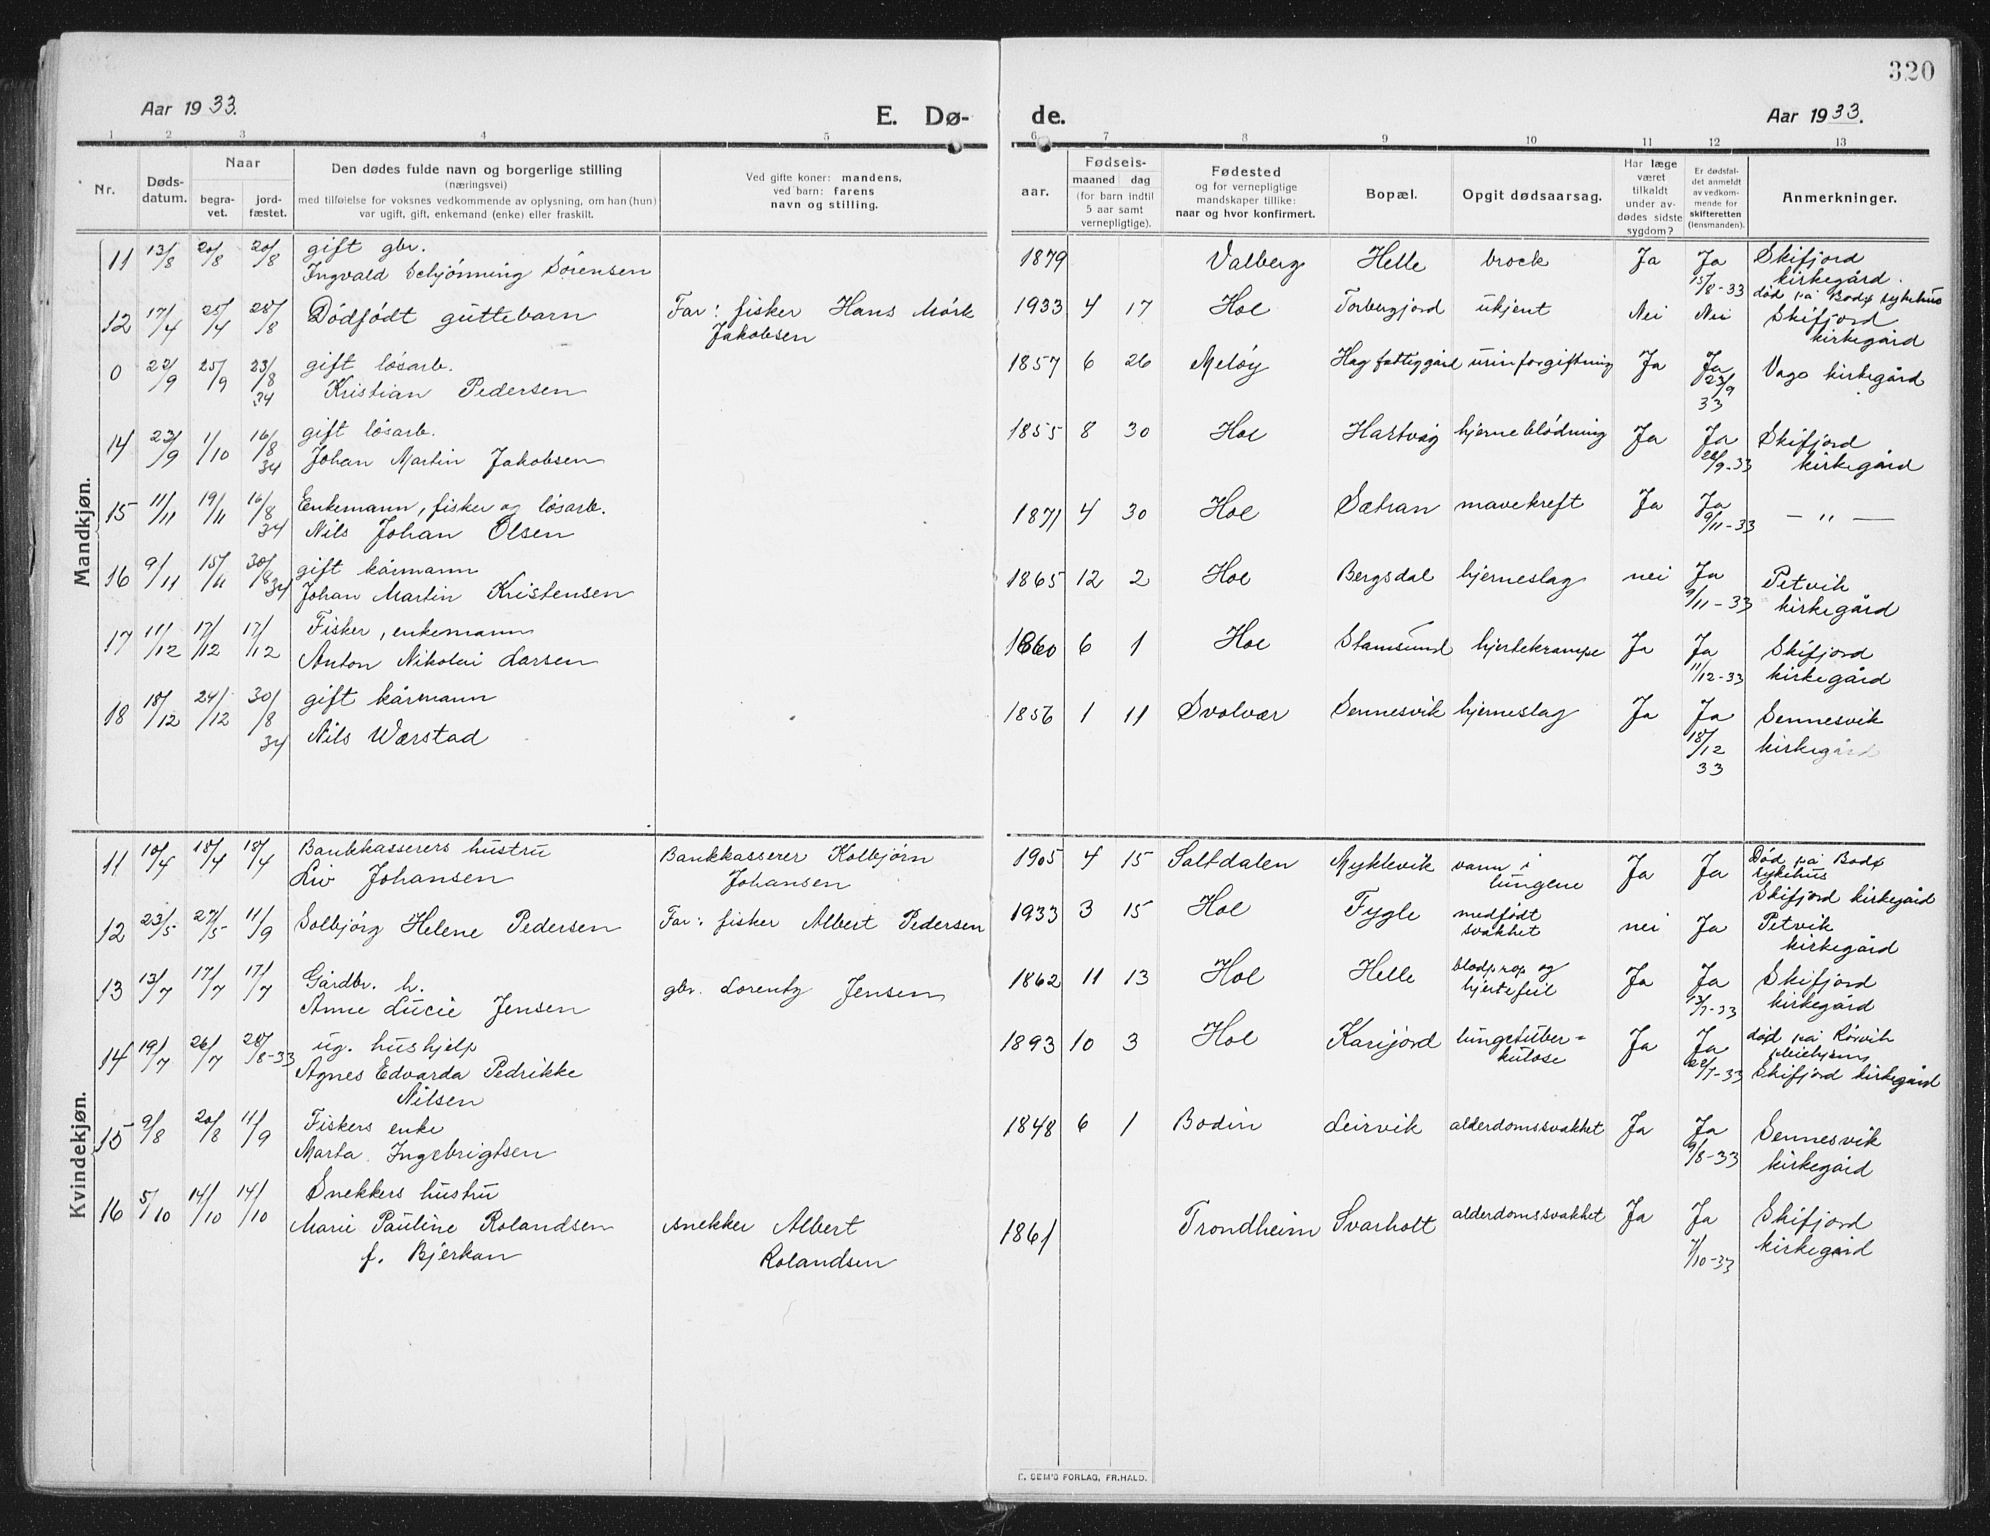 320
Aar 1933.
E. Dø-
de.
Aar 1933.
1 2 3 4 5 6 7 8 9 10 11 12 13
Nr.
Døds-
datum.
Naar
begra-
vet.
jord-
fæstet.
Den dødes fulde navn og borgerlige stilling
(næringsvei)
med tilføielse for voksnes vedkommende av oplysning, om han (hun)
var ugift, gift, enkemand (enke) eller fraskilt.
Ved gifte koner: mandens,
ved barn: farens
navn og stilling.
Fødseis-
aar.
maaned dag
(for barn indtil
5 aar samt
vernepligtige).
Fødested
og for vernepligtige
mandskaper tillike:
naar og hvor konfirmert.
Bopæl.
Opgit dødsaarsag.
Har læge
været
tilkaldt
under av-
dødes sidste
sygdom?
Er dødsfal-
det anmeldt
av vedkom-
mende for
skifteretten
(lensmanden).
Anmerkninger.
Mandkjøn.
11 13/8 20/8 20/8 gift gbr.
Ingvald Schjønning Sørensen
1879 Valberg Helle brock Ja Ja
15/8-33
Skifjord
kirkegård.
død på Bodø sykehus
12 17/4 25/4 28/8 Dødfødt guttebarn
Far: fisker Hans Mørk
Jakobsen
1933 4 17 Hol Torbergjord ukjent Nei Nei
Skifjord
kirkegård
0 22/9 25/9 23/8 34 gift løsarb.
Kristian Pedersen
1857 6 26 Meløy Hag fattiggård urinforgiftning Ja Ja
23/9 33
Vago kirkegård
14 23/9 1/10 16/8 34 gift løsarb.
Johan Martin Jakobsen
1855 8 30 Hol Hartvåg hjerneblødning Ja Ja
/9-33
Skifjord
kirkegård
15 11/11 19/11 16/8 34 Enkemann, fisker og løsarb.
Nils Johan Olsen
1871 4 30 Hol Sætran mavekreft Ja Ja
9/11-33
— " —
16 9/11 15/11 30/8 34 gift kårmann
Johan Martin Kristensen
1865 12 2 Hol Bergsdal hjerneslag nei Ja
9/11-33
Petvik
kirkegård
17 11/12 17/12 17/12 Fisker, enkemann
Anton Nikolai Larsen
1860 6 1 Hol Stamsund hjertekrampe Ja Ja
11/12-33
Skifjord
kirkegård
18 18/12 24/12 30/8 34 gift kårmann
Nils Wærstad
1856 1 11 Svolvær Sennesvik hjerneslag Ja Ja
18/12 33
Sennesvik
kirkegård
Kvindekjøn.
11 10/4 18/4 18/4 Bankkasserers hustru
Liv Johansen
Bankkasserer Kolbjørn
Johansen
1905 4 15 Saltdalen Myklevik vann i
lungene Ja Ja
Død på Bodø
sykehus
Skifjord kirkegård
12 23/5 27/5 11/9 Solbjørg Helene Pedersen
Far: fisker Albert Pedersen
1933 3 15 Hol Fygle medfødt
svakhet nei Ja
Petvik
kirkegård
13 13/7 17/7 17/7 Gårdbr. h.
Anne Lucie Jensen
gbr. Lorentz Jensen
1862 11 13 Hol Helle blodprop og
hjertefeil Ja Ja
13/7-33
Skifjord
kirkegård
14 19/7 26/7 28/8-33 ug. hushjelp
Agnes Edvarda Pedrikke
Nilsen
1893 10 3 Hol Karijord lungetuber=
kulose Ja Ja
22/7-33
død på Rörvik
pleiehjem
Skifjord kirkegård
15 9/8 20/8 11/9 Fiskers enke
Marta Ingebrigtsen
1848 6 1 Bodin Leirvik alderdomssvakhet Ja Ja
9/8-33
Sennesvik
kirkegård
16 5/10 14/10 14/10 Snekkers hustru
Marie Pauline Rolandsen
f. Bjerkan
snekker Albert
Rolandsen
1861 Trondheim Svarholt alderdomssvakhet Ja Ja
7/10-33
Skifjord
kirkegård
E. SEM'S FORLAG, FR.HALD.